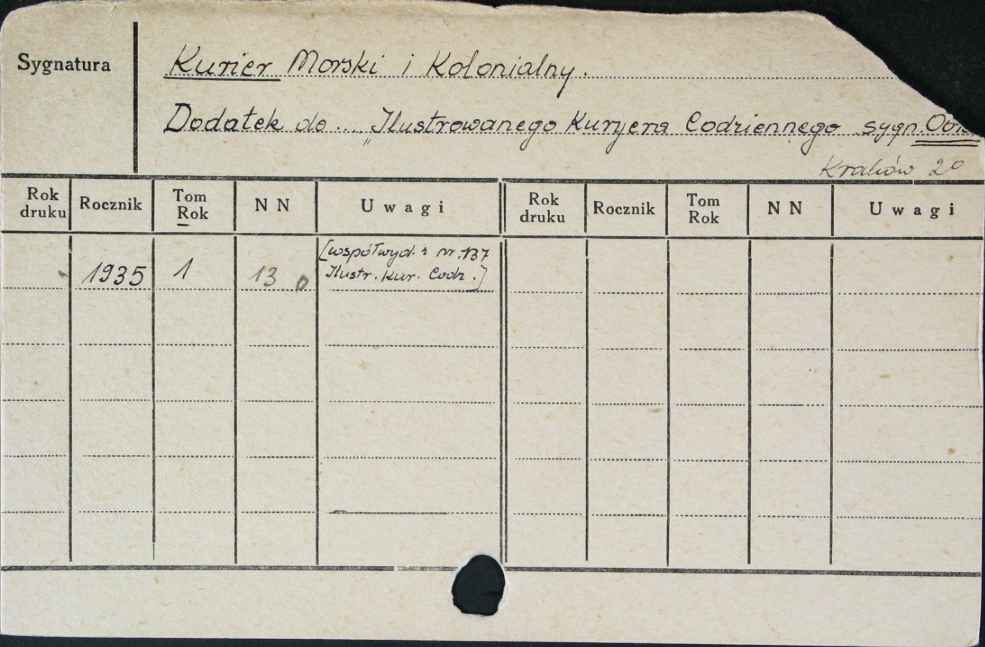 Sygnatura
Kurier Morski i Kolonialny.
Dodatek do ... „Ilustrowanego Kuryera Codziennego sygn.
Kraków 2°
Rok druku Rocznik Tom Rok NN Uwagi Rok druku Rocznik Tom Rok NN Uwagi
[współwyd. z nr. 137
1935 1 13 Ilustr. Kur. Codz.]